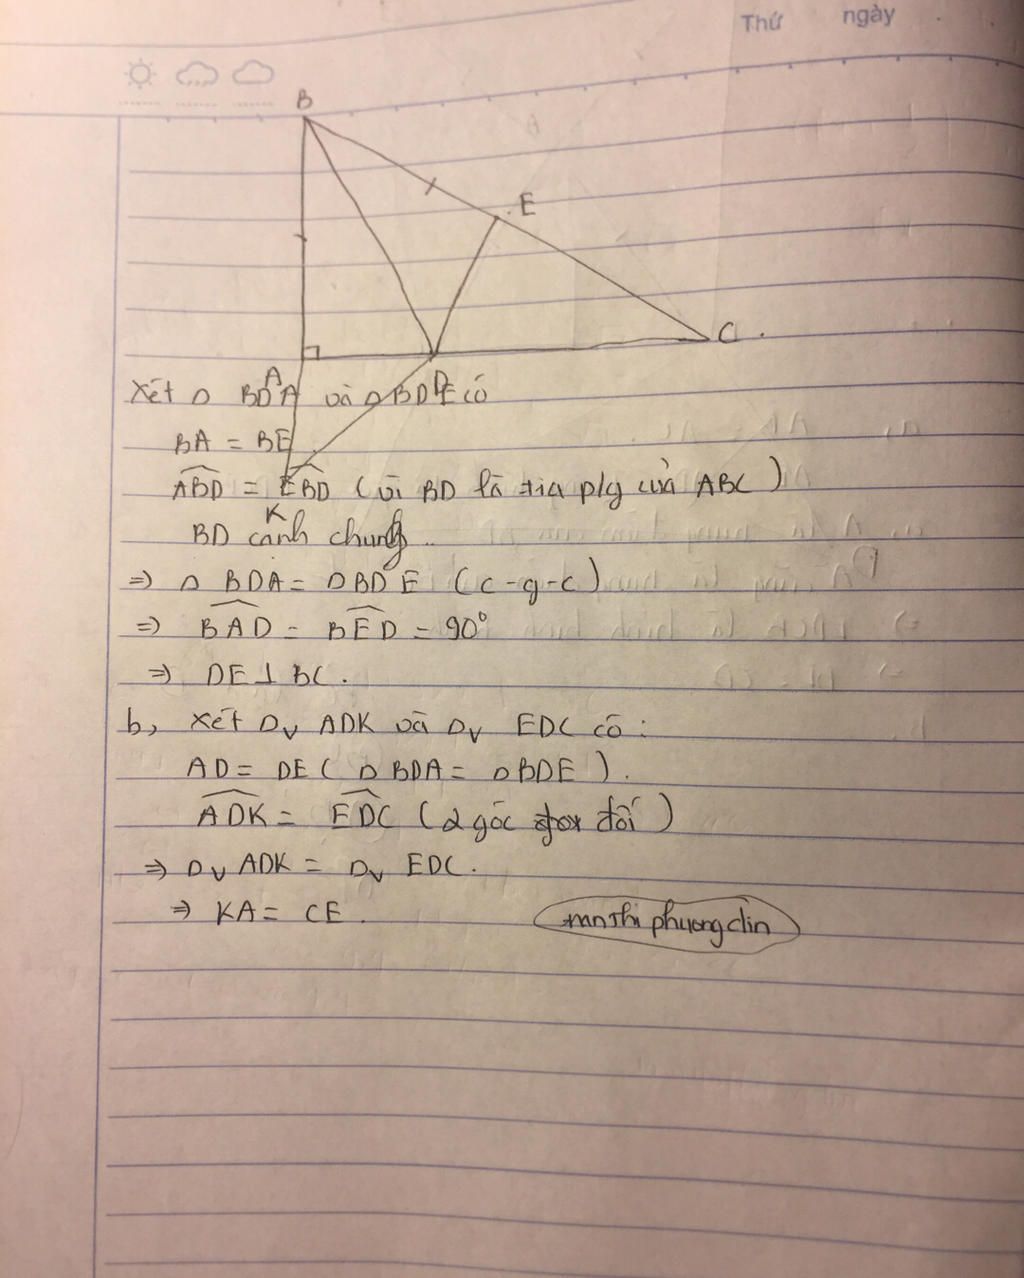 Thứ ngày
B
E
C
A
D
K
Xét Δ BDA và Δ BDE có
BA = BE
ABD = EBD (vì BD là tia plg của ABC)
BD cạnh chung
=> Δ BDA = Δ BDE (c-g-c)
=> BAD = BED = 90°
=> DE ⊥ BC.
b, Xét Δv ADK và Δv EDC có:
AD = DE (Δ BDA = Δ BDE).
ADK = EDC (2 góc đối)
=> Δv ADK = Δv EDC.
=> KA = CE.